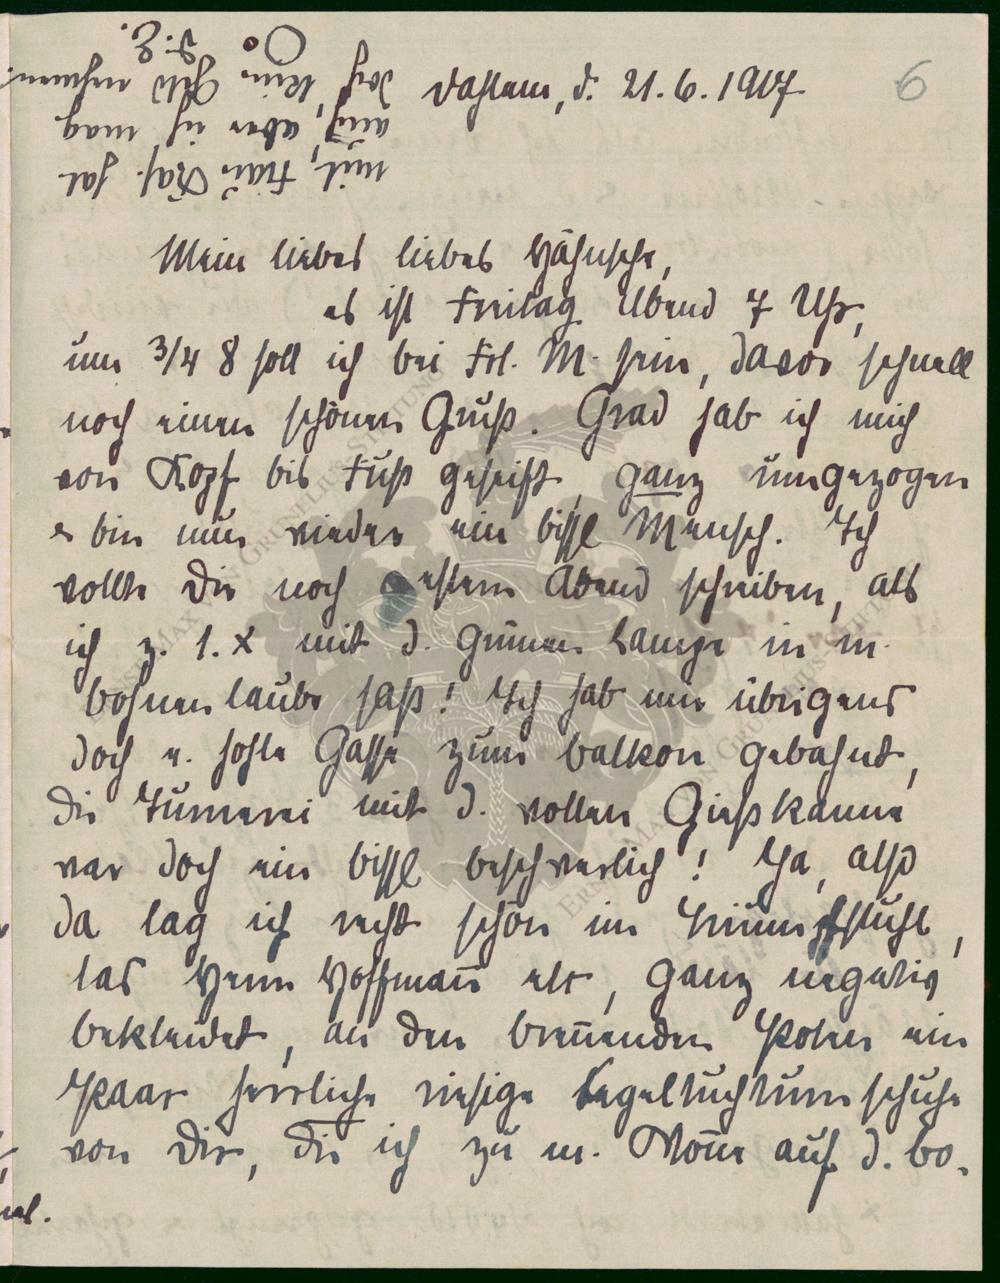 6
Dahlem, d. 21.6.1917
mit, Frau Kas. hat
auch, aber ich mag
doch kein Geld nehmen.
D. E.
Mein liebes liebes Hähnsche,
es ist Freitag Abend 7 Uhr,
um 3/4 8 soll ich bei Frl. M. sein, davor schnell
noch einen schönen Gruß. Grad hab ich mich
von Kopf bis Fuß geseift, ganz umgezogen
& bin nun wieder ein bissl Mensch. Ich
wollte Dir noch gestern Abend schreiben, als
ich z. 1. X mit d. grünen Lampe in m.
Bohnenlaube saß! Ich hab mir übrigens
doch e. hohle Gasse zum Balkon gebahnt,
die Turnerei mit d. vollen Gießkanne
war doch ein bissl beschwerlich! Ja, also
da lag ich recht schön im Triumpfstuhl,
las Herrn Hoffmann etc, ganz negativ
bekleidet, an den brennenden Pfoten ein
Paar herrliche riesige Segeltuchturnschuhe
von Dir, die ich zu m. Wonne auf d. Bo-